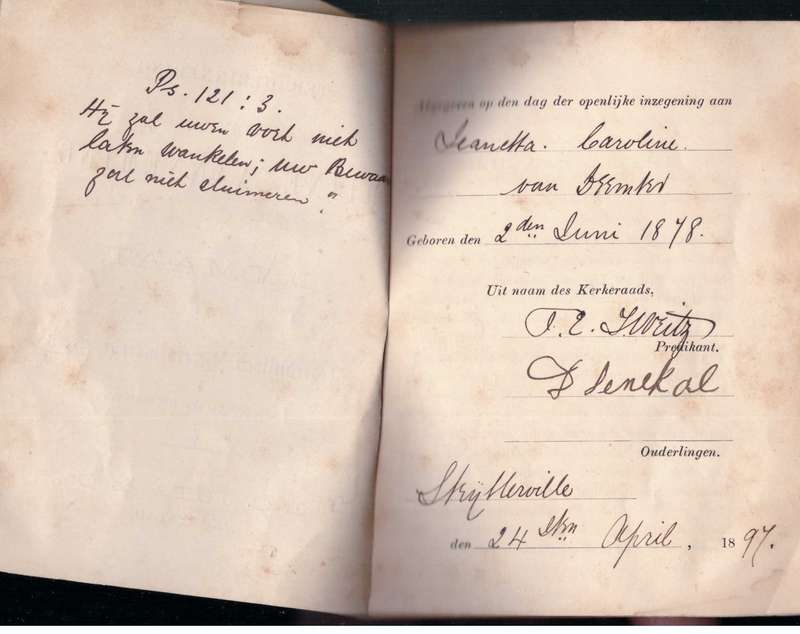 Ps. 121 : 3.
Hij zal uwen voet niet
laten wankelen; uw Bewaar
zal niet sluimeren."
Afgegeven op den dag der openlijke inzegening aan
Jeanetta. Caroline.
van
Geboren den 2den Juni 1878.
Uit naam des Kerkeraads,
Predikant.
D Senekal
Ouderlingen.
Steytlerville
den 24sten April, 1897.